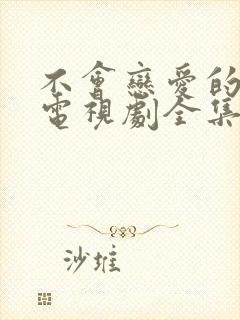 不會戀愛的
電視劇全集
沙堆